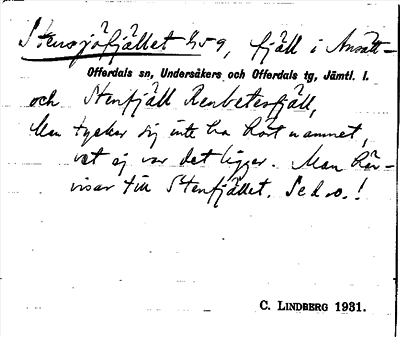 Stensjöfjället 459, fjäll i Ansätt-
Offerdals sn, Undersåkers och Offerdals tg, Jämtl. l.
och Stenfjäll Renbetesfjäll,
Man tycker sig inte ha hört namnet,
vet ej var det ligger. Man hän-
visar till Stenfjället. Se d. o.!
C. LINDBERG 1931.